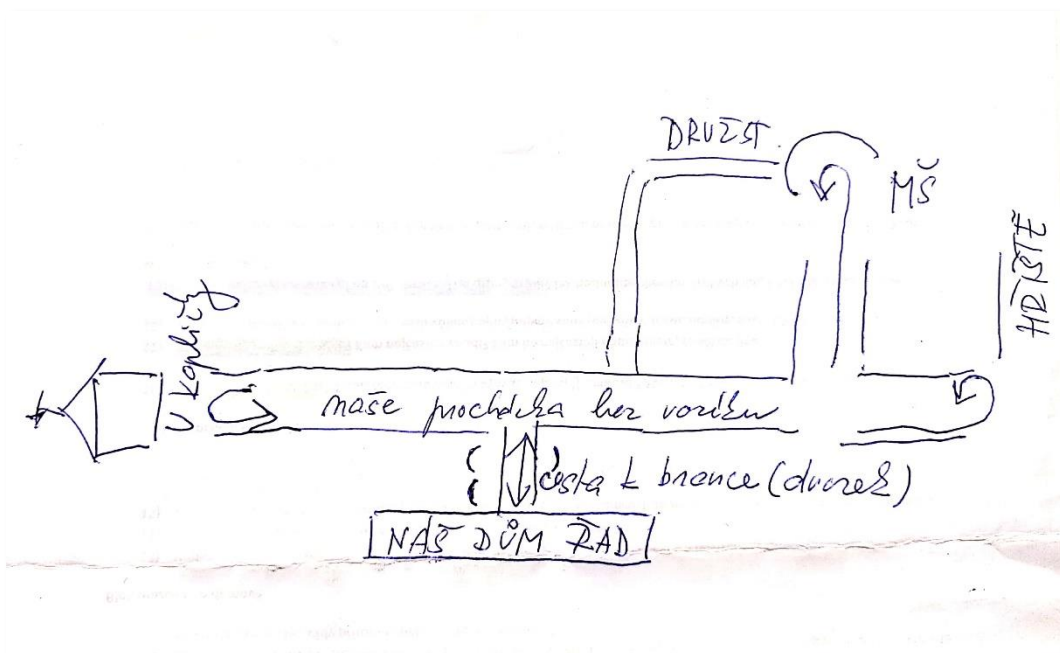 DRUŽST.
MŠ
HŘIŠTĚ
U kapličky
naše procházka bez vozíku
cesta k brance (dvorek)
NÁŠ DŮM ŘAD